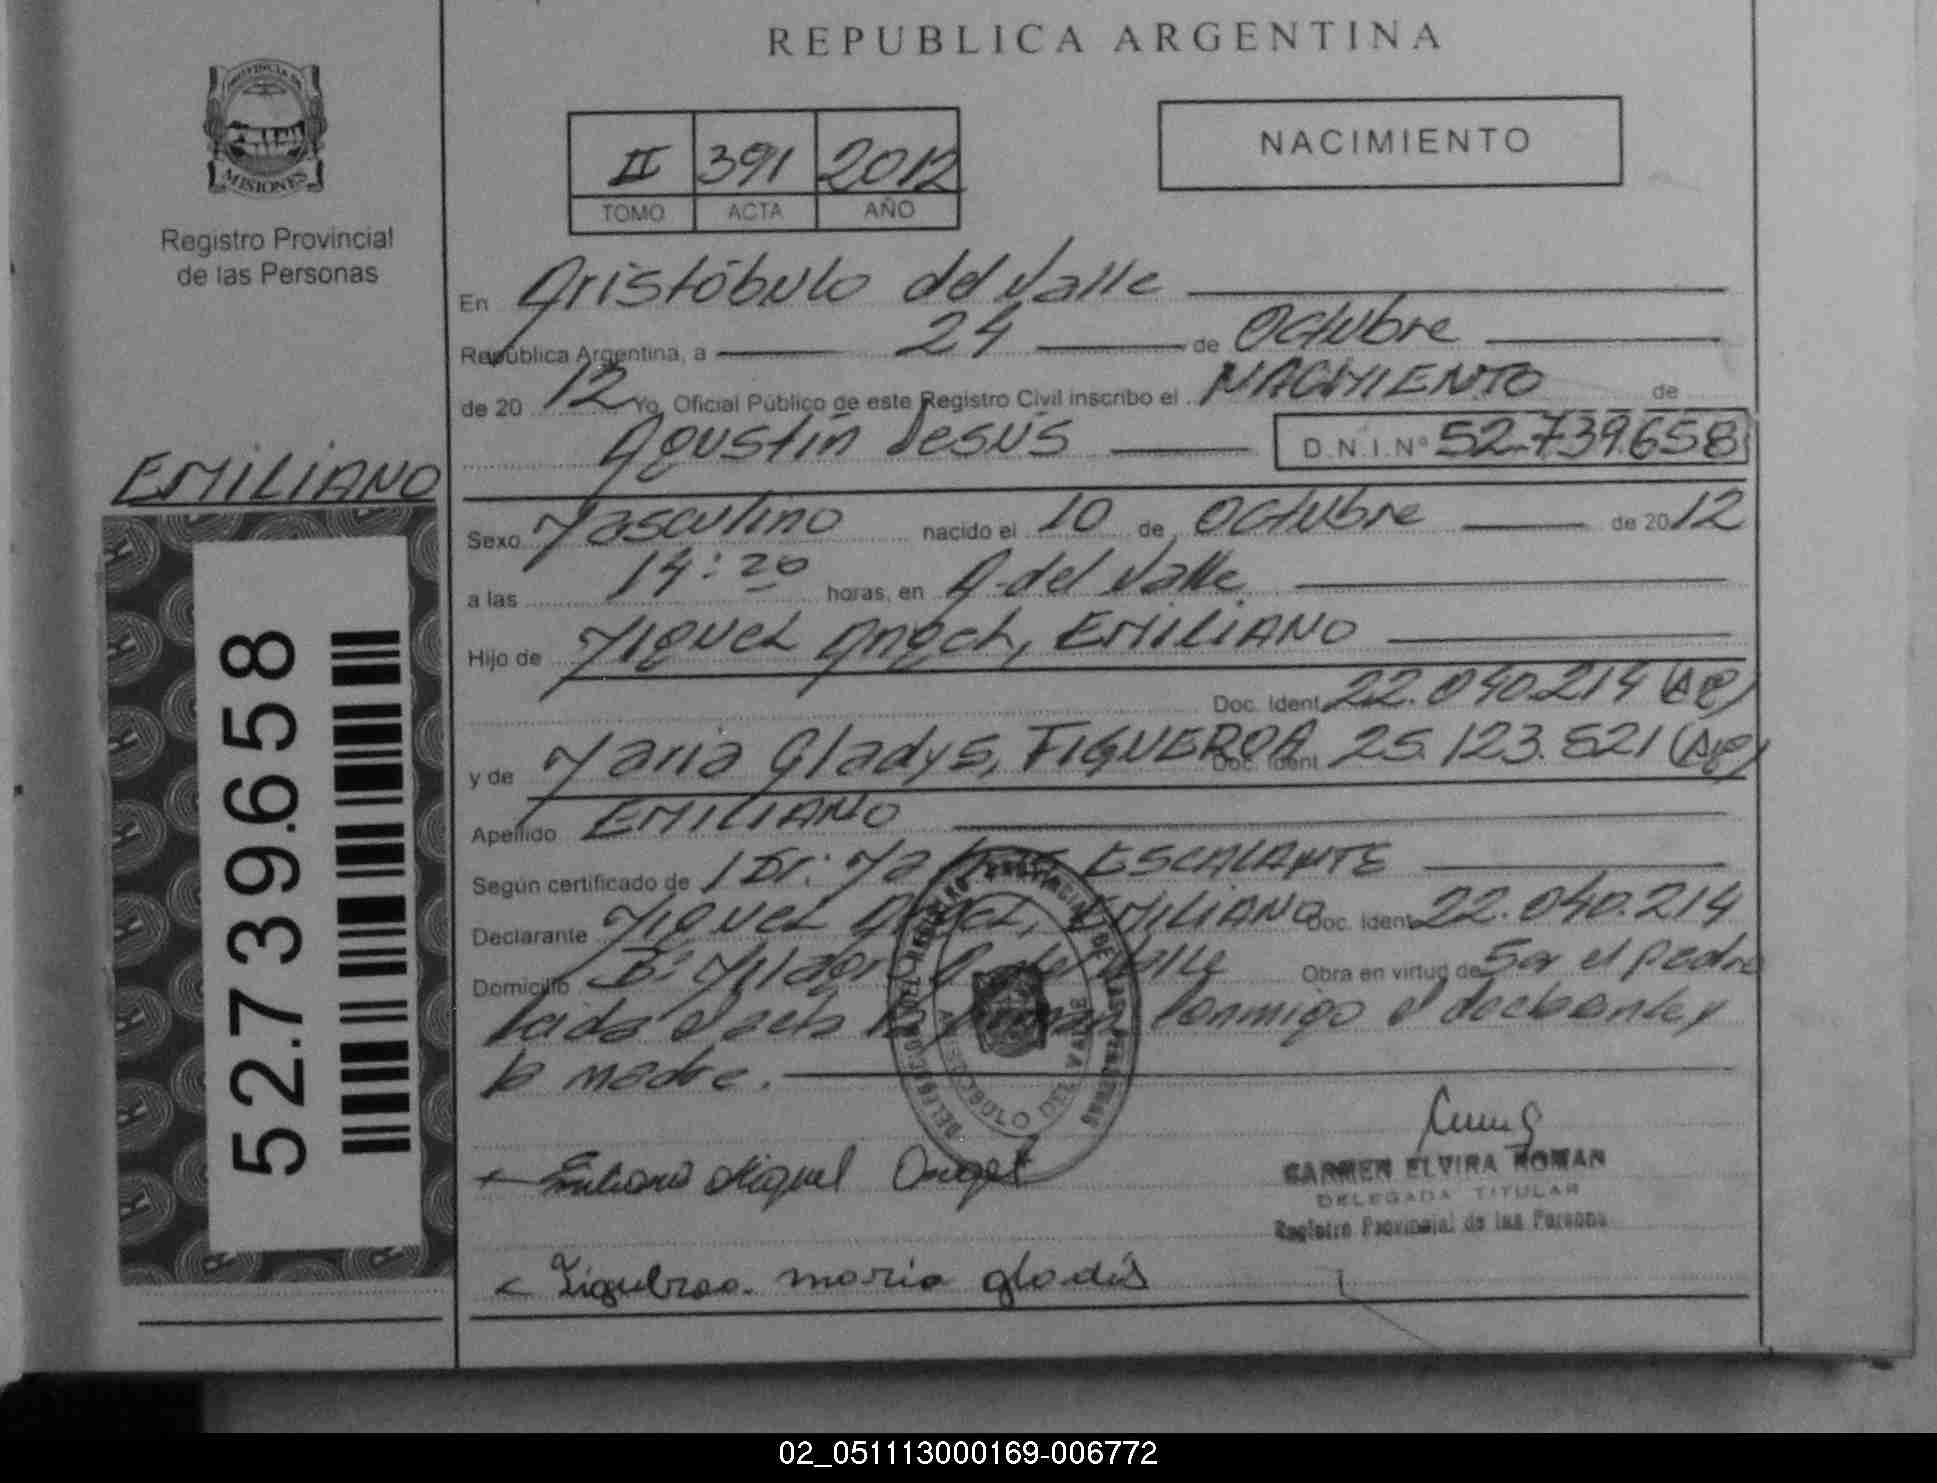 REPUBLICA ARGENTINA
PROVINCIA DE
MISIONES
Registro Provincial
de las Personas
II 391 2012
TOMO ACTA AÑO
NACIMIENTO
En Aristóbulo del Valle
República Argentina, a 24 de Octubre
de 20 12 Yo, Oficial Público de este Registro Civil inscribo el NACIMIENTO de
Agustín Jesús D.N.I.Nº 52.739.658
EMILIANO
52.739.658
Sexo Masculino nacido el 10 de Octubre de 20 12
a las 14:20 horas, en A. del Valle
Hijo de Miguel Angel, EMILIANO
Doc. Ident. 22.040.214 (Ag)
y de Maria Gladys, FIGUEROA Doc. Ident. 25.123.521 (Ag)
Apellido EMILIANO
Según certificado de Dr: ESCALANTE
Declarante Miguel Angel, EMILIANO Doc. Ident. 22.040.214
Domicilio Bº A. del Valle Obra en virtud de Ser el padre
Leida el acta la firman conmigo el declarante y
la madre.
ARISTOBULO DEL VALLE
Emiliano Miguel Angel
CARMEN ELVIRA ROMAN
DELEGADA TITULAR
Registro Provincial de las Personas
Figueroa maria gladis
02_051113000169-006772